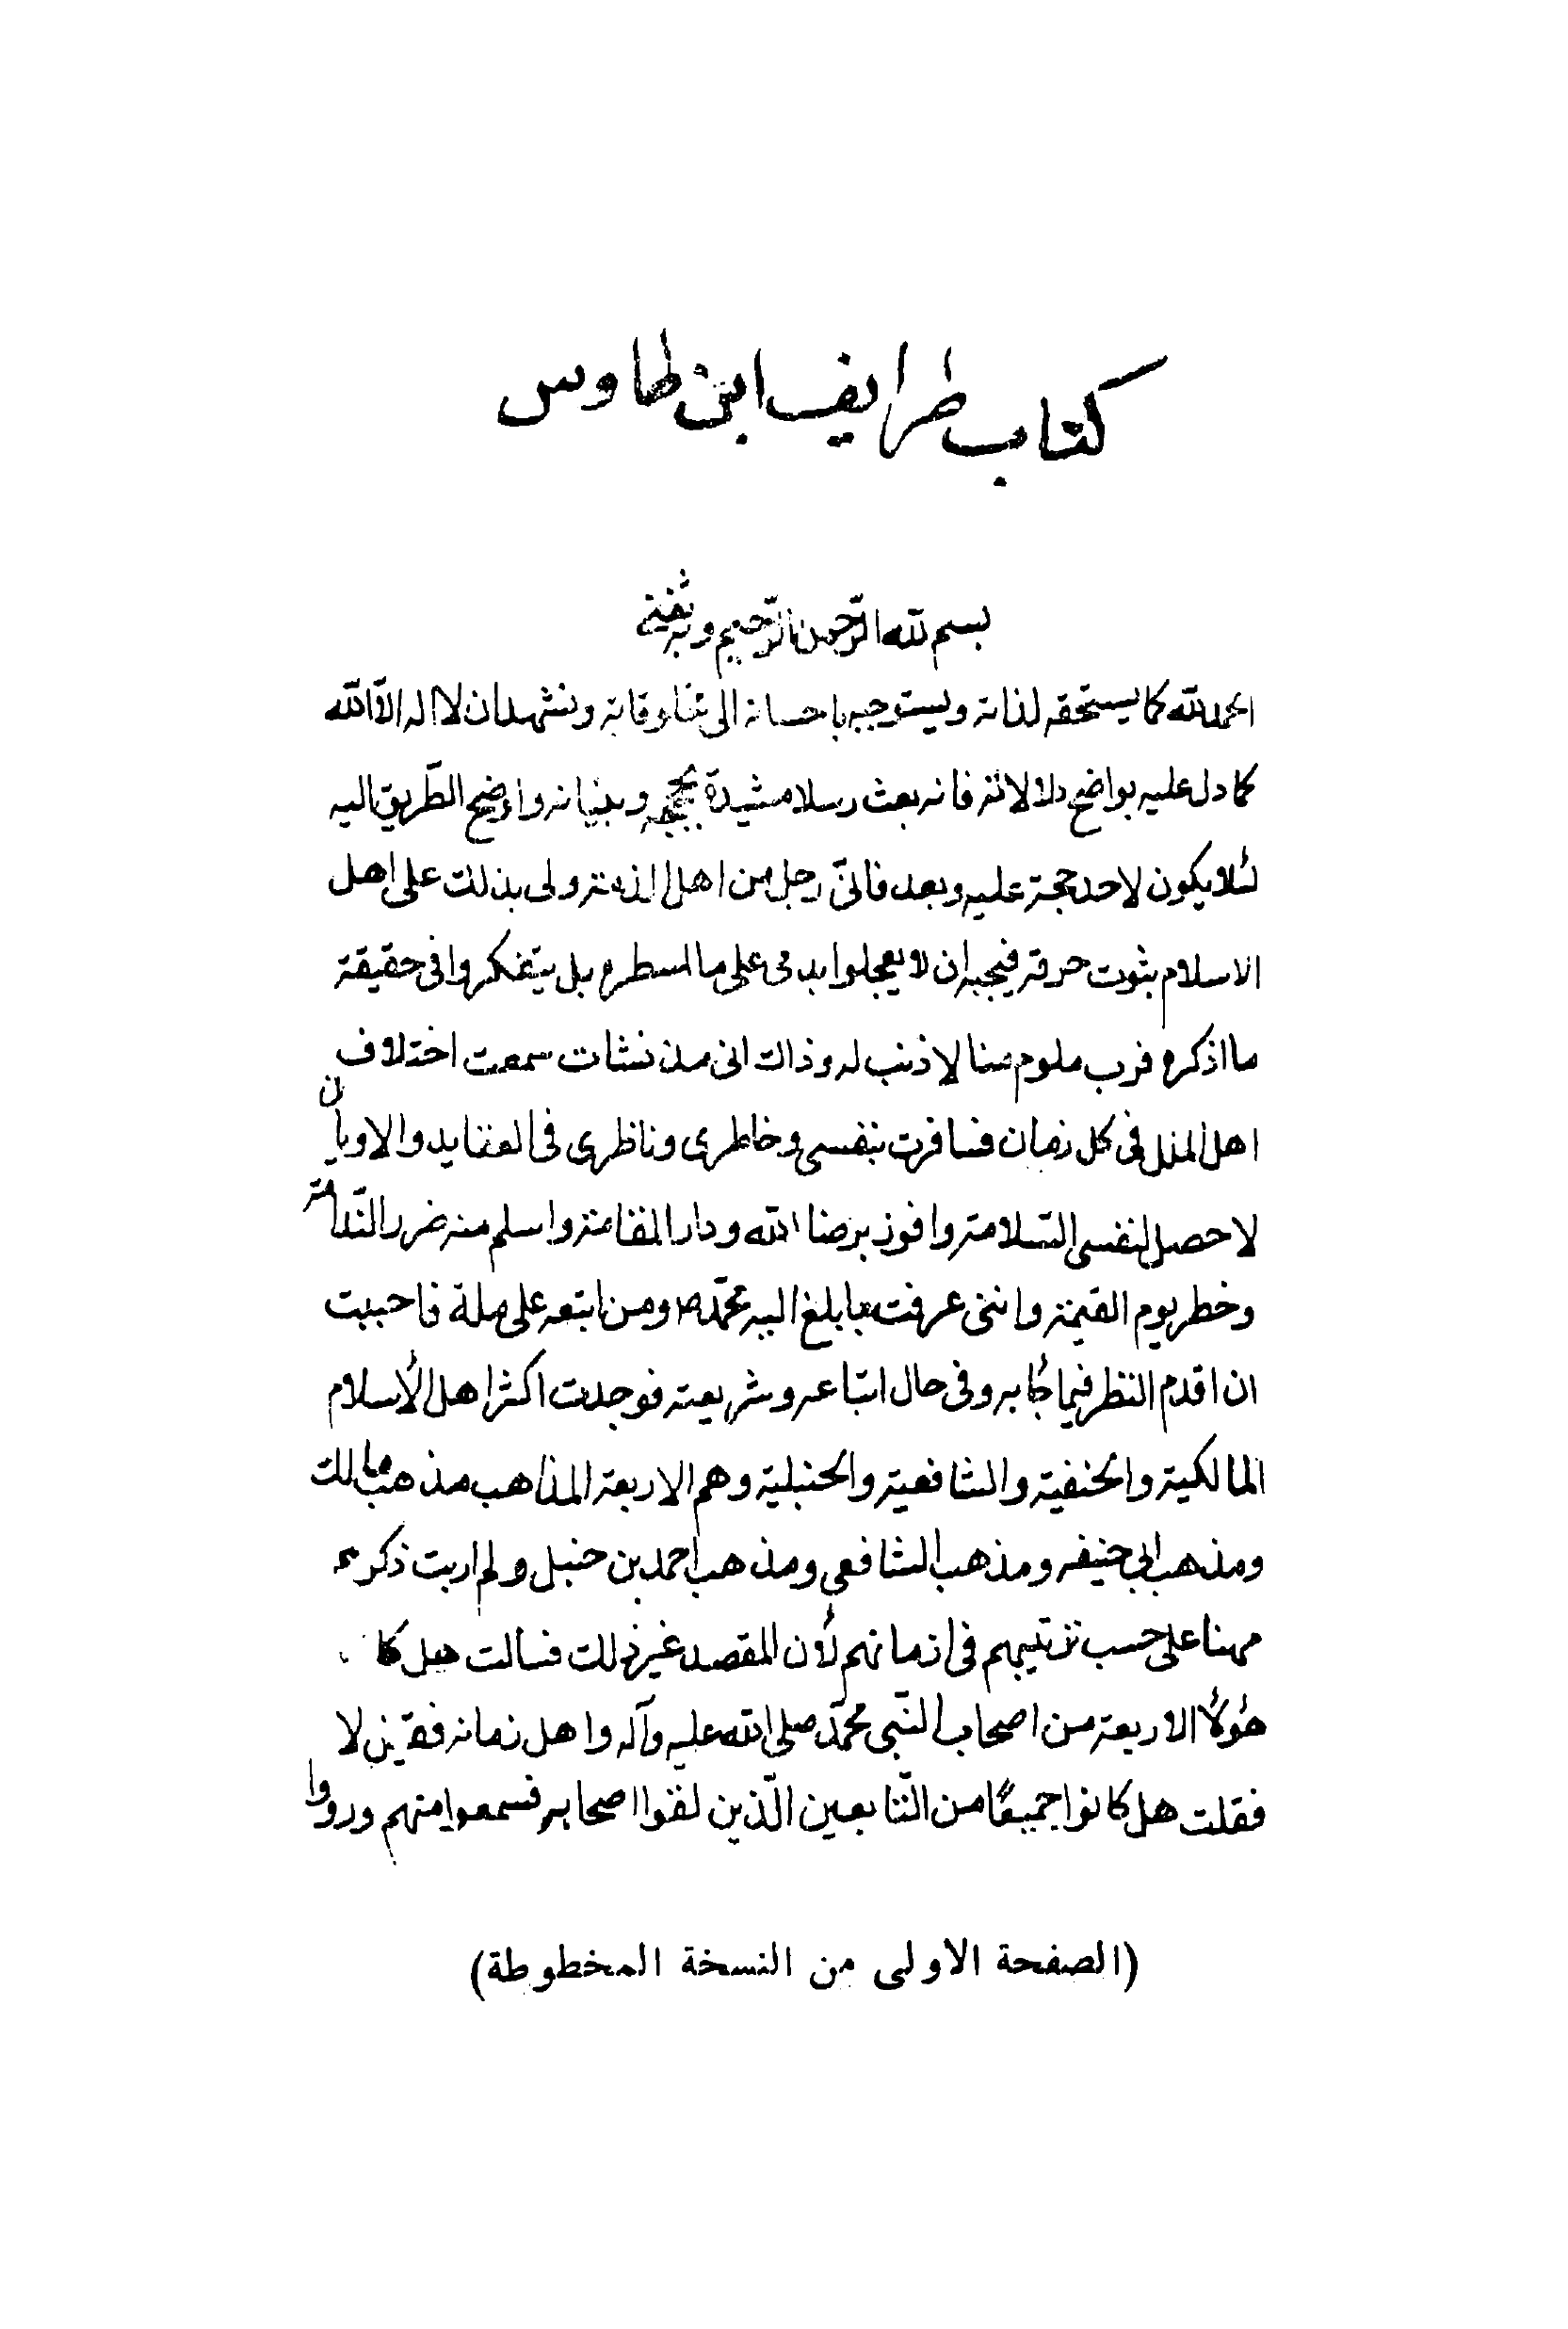 كتاب طرايف ابن طاوس
بسم الله الرحمن الرحيم وبه ثقتي
الحمد لله كما يستحقه لذاته ويستوجبه باحسانه الى مخلوقاته ونشهد ان لا اله الا الله
كما دل عليه بواضح دلالاته فانه بعث رسلا مشيدة بحججه وبنيانه واوضح الطريق اليه
لئلا يكون لاحد حجة عليه وبعد فانّى رجل من اهل الذمة ولى بذلك على اهل
الاسلام ثبوت حرقة فيجب ان لا يعجلوا بذمى على ما اسطره بل يتفكروا فى حقيقة
ما اذكره فرب ملوم منا لا ذنب له وذاك انى منذ نشات سمعت اختلاف
اهل الملل فى كل زمان فسافرت بنفسى وخاطرى وناظرى فى العقايد والاديان
لاحصل لنفسى السّلامة وافوز برضا الله ودار المقامة واسلم منه ضرر النّدامة
وخطر يوم القيمة واننى عرفت ما بلغ اليه محمّد ص ومن اتبعه على ملة فاحببت
ان اقدم النظر فيما جاء به وفى حال اتباعه وشريعته فوجدت اكثر اهل الأسلام
المالكية والحنفية والشافعية والحنبلية وهم الاربعة المذاهب مذهب مالك
ومذهب ابي حنيفه ومذهب الشافعى ومذهب احمد بن حنبل ولم اربت ذكرهم
مهنا على حسب ترتيبهم فى ازمانهم لأن المقصد غير ذلك فسالت هل كا
هؤلآء الاربعة من اصحاب النّبى محمّد صلى الله عليه وآله واهل زمانه فقيل لا
فقلت هل كانوا جميعًا من التّابعين الّذين لقوا اصحابه فسمعوا منهم ورووا
(الصفحة الاولى من النسخة المخطوطة)